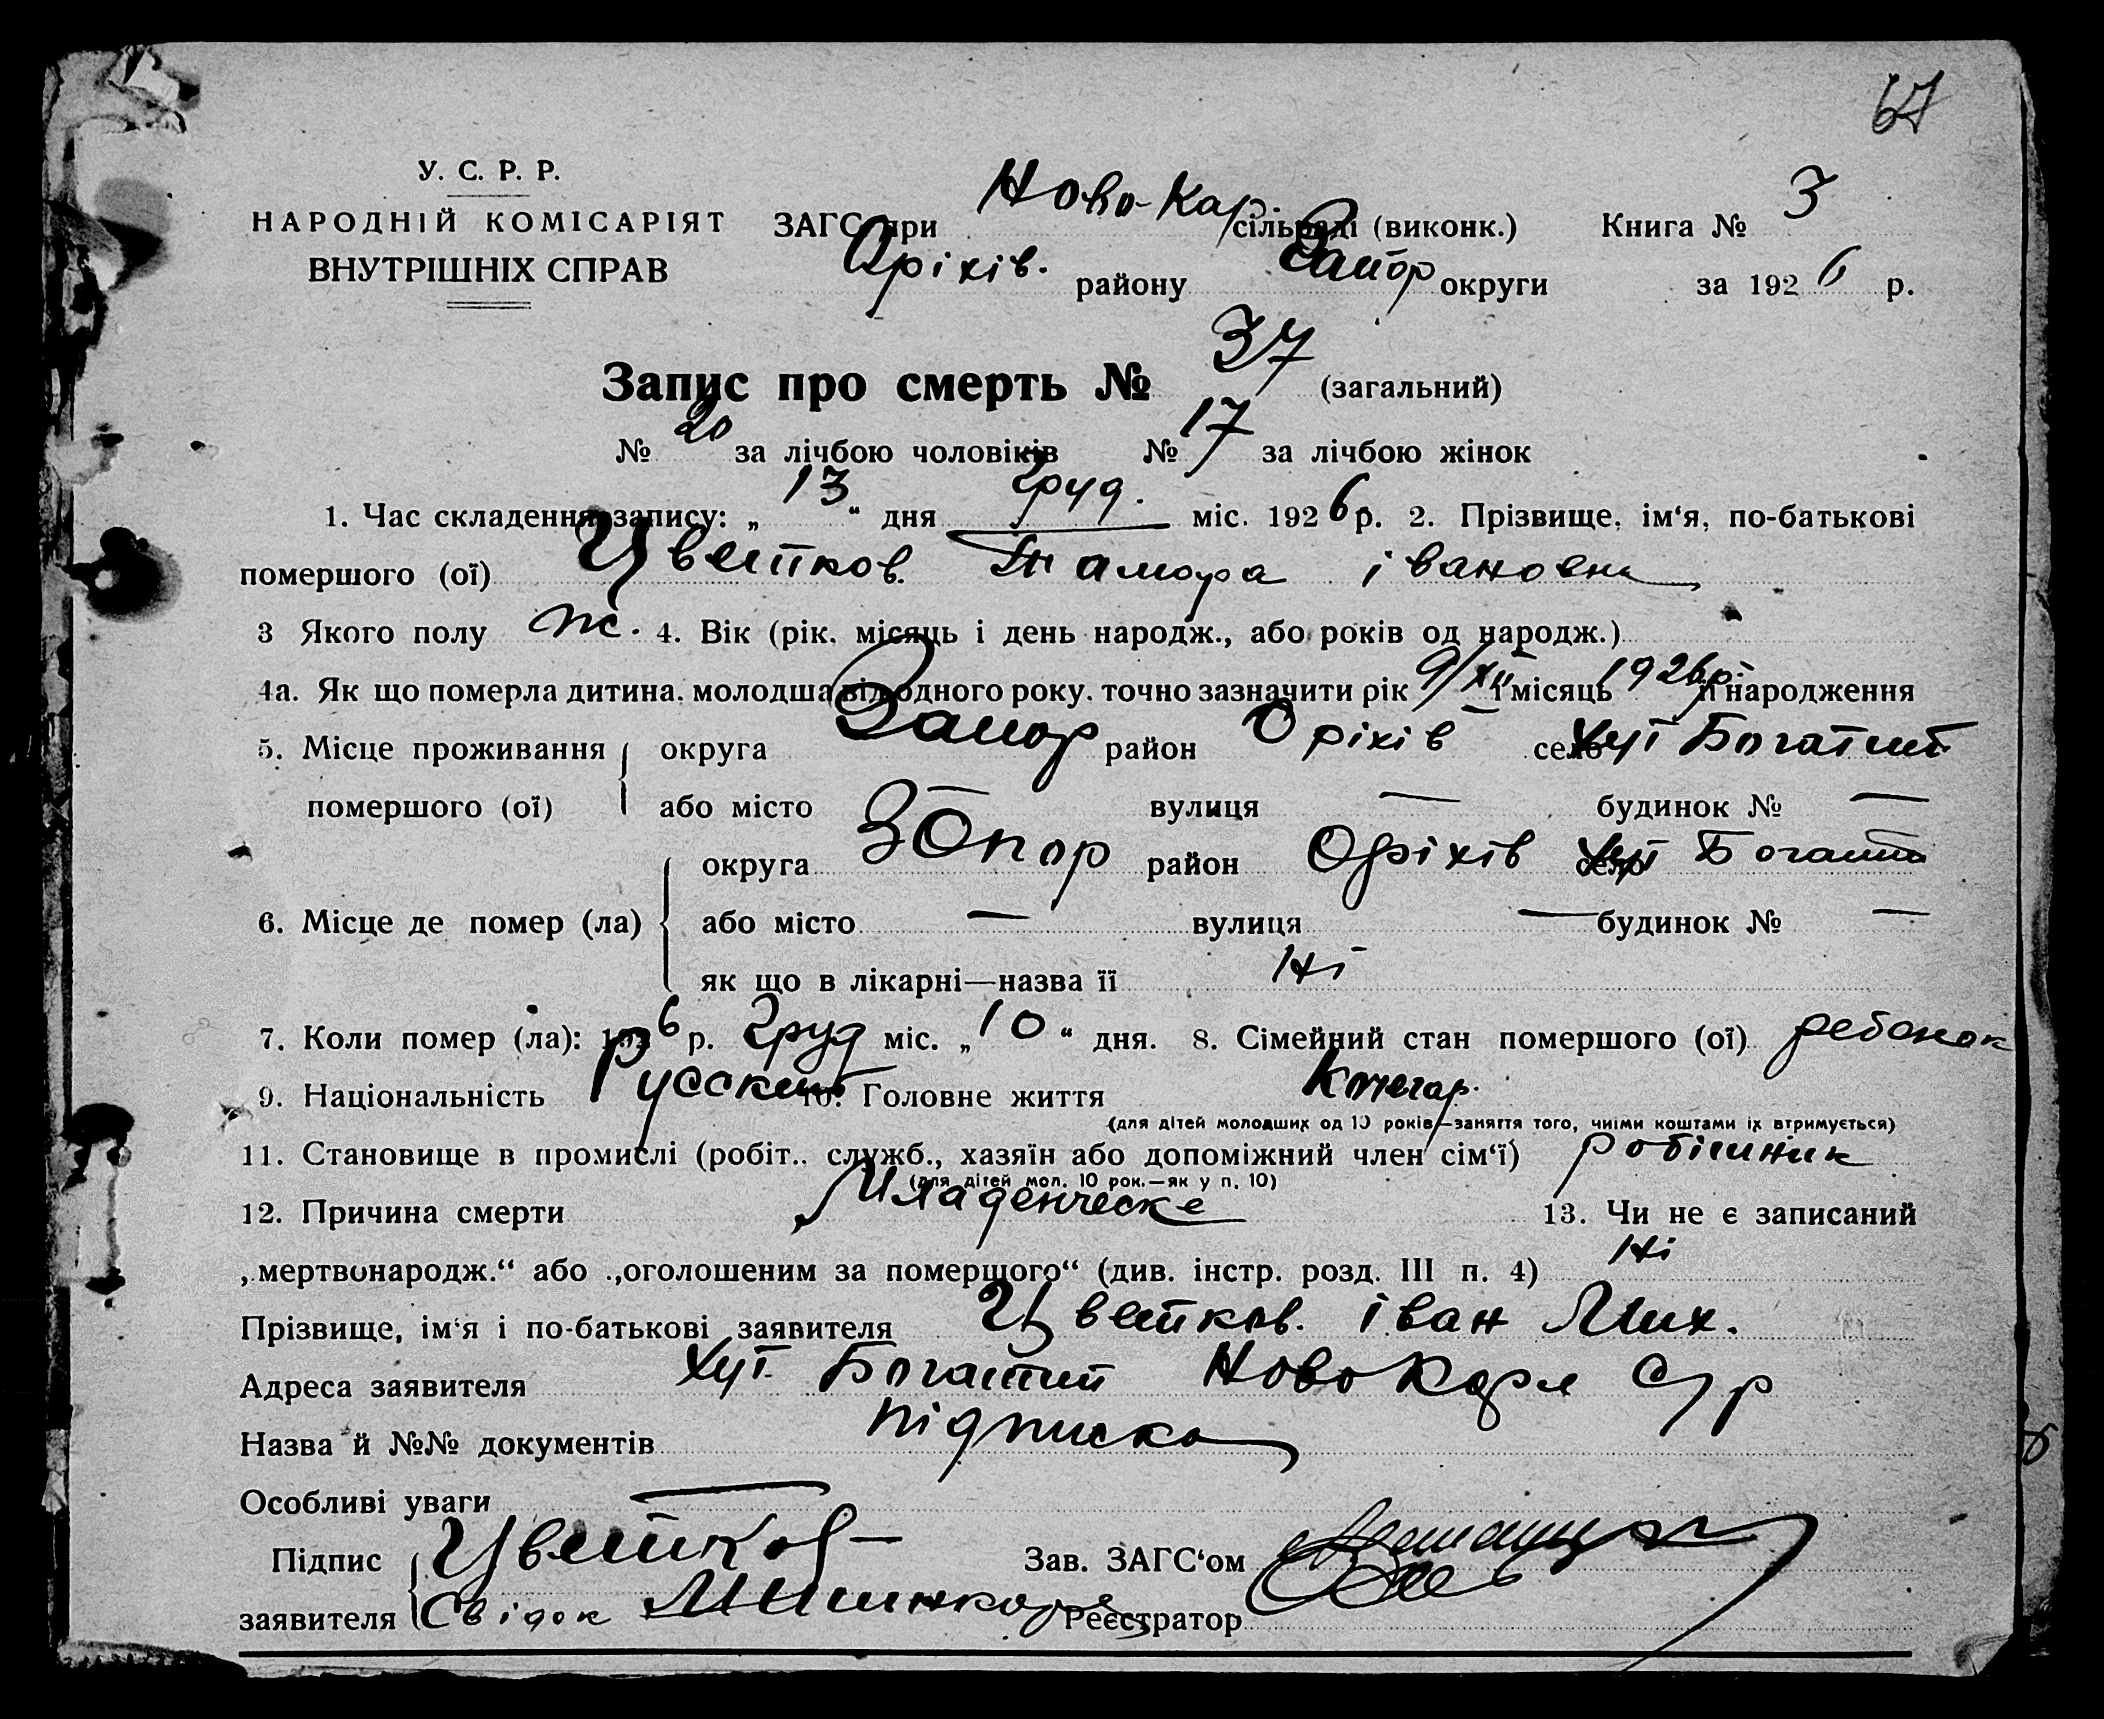 67
У. С. Р. Р.
НАРОДНІЙ КОМІСАРІЯТ
ВНУТРІШНІХ СПРАВ
ЗАГС при Ново-Кар. сільраді (виконк.) Книга № 3
Оріхів. району Запор округи за 1926 р.
Запис про смерть № 37 (загальний)
№ 20 за лічбою чоловіків № 17 за лічбою жінок
1. Час складення запису: „13“ дня груд. міс. 1926 р. 2. Прізвище, ім‘я, по-батькові
помершого (ої) Цветков. Тамора івановна
3 Якого полу ж. 4. Вік (рік, місяць і день народж., або років од народж.)
4а. Як що померла дитина, молодша від одного року, точно зазначити рік 9/XII і місяць 1926р. її народження
5. Місце проживання округа Запор район Оріхів село хут Богатий
помершого (ої) або місто — вулиця — будинок № —
округа Запор район Оріхів село хут Богатий
6. Місце де помер (ла) або місто — вулиця — будинок № —
як що в лікарні—назва її Ні
7. Коли помер (ла): 1926 р. груд міс. „10“ дня. 8. Сімейний стан помершого (ої) ребонок
9. Національність Русский 10. Головне життя Кочегар.
(для дітей молодших од 10 років—заняття того, чиїми коштами їх втримується)
11. Становище в промислі (робіт., служб., хазяїн або допоміжний член сім‘ї) робітник
(для дітей мол. 10 рок.—як у п. 10)
12. Причина смерти Младенческе 13. Чи не є записаний
„мертвонародж.“ або „оголошеним за помершого“ (див. інстр. розд. III п. 4) Ні
Прізвище, ім‘я і по-батькові заявителя Цветков. іван Мих.
Адреса заявителя хут. Богатий Ново Карл С/р
Назва й №№ документів підписка
Особливі уваги —
Підпис Цветков Зав. ЗАГС‘ом
заявителя Свідок Реєстратор